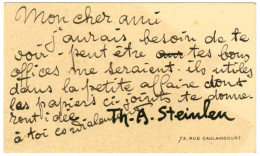 Mon cher ami
j'aurais besoin de te
voir - peut être tes bons
offices me seraient-ils utiles
dans la petite affaire dont
les papiers ci-joints te donne
ront idée
à toi cordialement Th. A. Steinlen
73, RUE CAULAINCOURT